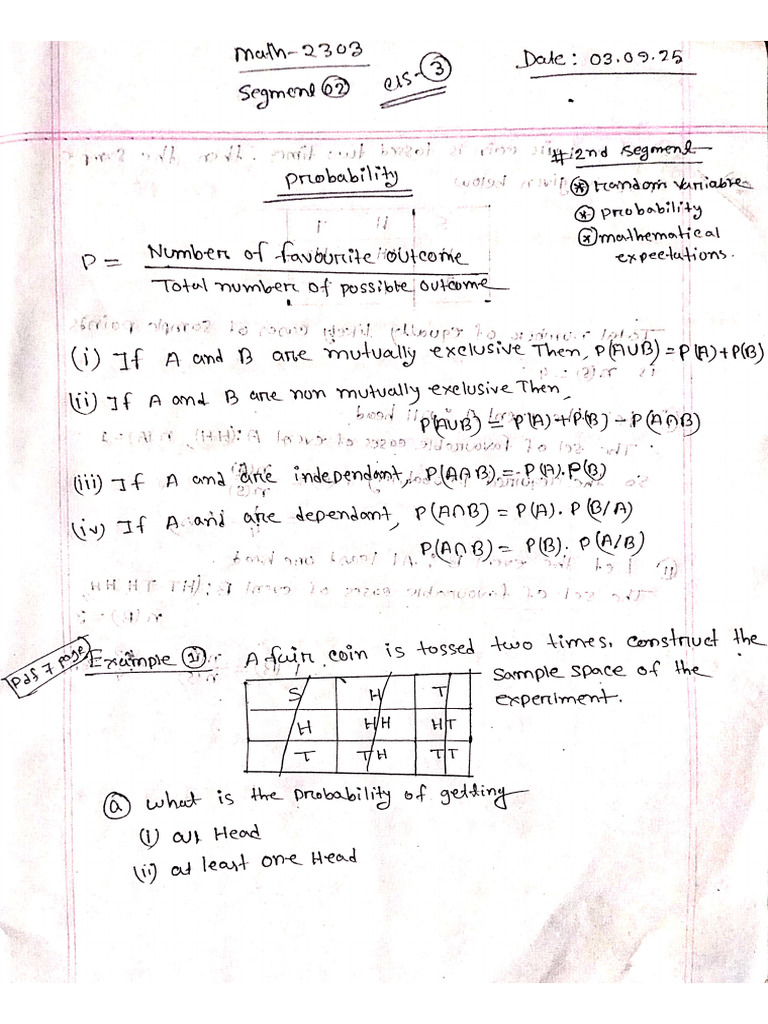 Math-2303
Date: 03.09.25
Segment 02
cls-3
#2nd Segment
Probability
* random variable
* probability
* mathematical expectations.
P = Number of favourite outcome / Total number of possible outcome
(i) If A and B are mutually exclusive Then, P(A∪B) = P(A)+P(B)
(ii) If A and B are non mutually exclusive Then,
P(A∪B) = P(A)+P(B) - P(A∩B)
(iii) If A and are independant, P(A∩B) = P(A). P(B)
(iv) If A and are dependant, P(A∩B) = P(A). P(B/A)
P(A∩B) = P(B). P(A/B)
Pdf 7 page
Example: A fair coin is tossed two times, construct the
sample space of the
experiment.
S H T
H HH HT
T TH TT
a what is the probability of getting
(i) all Head
(ii) at least one Head